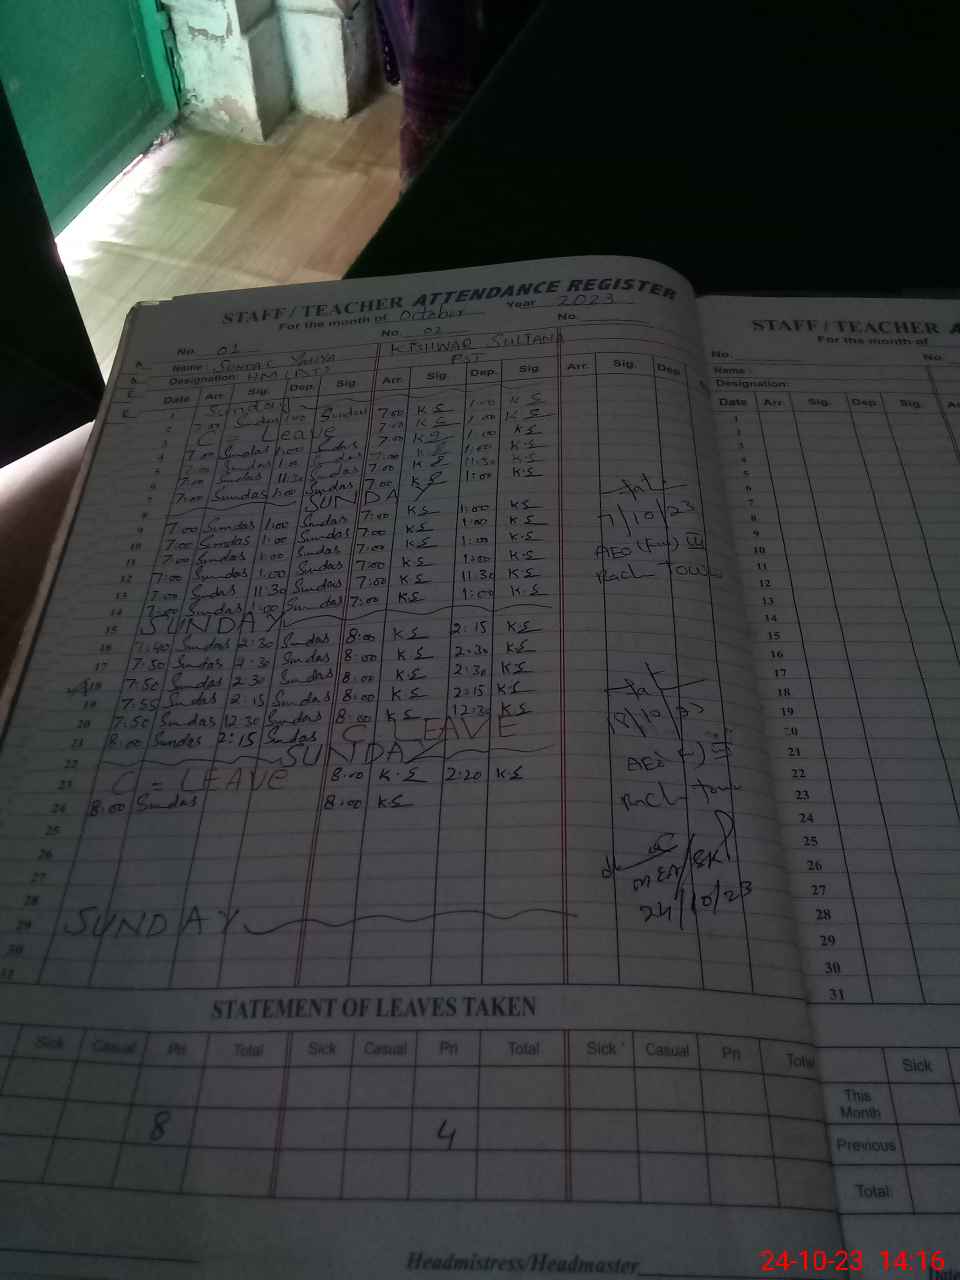 STAFF / TEACHER ATTENDANCE REGISTER
For the month of October Year 2023
No. 01 No. 02 No.
Name: KISHWAR SULTANA
Designation: PST
Date Arr. Sig. Dep. Sig. Arr. Sig. Dep. Sig. Arr. Sig. Dep.
1 Sunday
2 7:00 Sundas 1:00 Sundas 7:00 K S 1:00 K S
3 C - Leave 7:00 K S 1:00 K S
4 7:00 Sundas 1:00 Sundas 7:00 K S 1:00 K S
5 7:00 Sundas 1:00 Sundas 7:00 K S 1:00 K S
6 7:00 Sundas 11:30 Sundas 7:00 K S 11:30 K S
7 7:00 Sundas 1:00 Sundas 7:00 K S 1:00 K S
8 SUNDAY
9 7:00 Sundas 1:00 Sundas 7:00 K S 1:00 K S
10 7:00 Sundas 1:00 Sundas 7:00 K S 1:00 K S
11 7:00 Sundas 1:00 Sundas 7:00 K S 1:00 K S
12 7:00 Sundas 1:00 Sundas 7:00 K S 1:00 K S
13 7:00 Sundas 11:30 Sundas 7:00 K S 11:30 K S
14 7:00 Sundas 1:00 Sundas 7:00 K S 1:00 K S
15 SUNDAY
16 7:40 Sundas 2:30 Sundas 8:00 K S 2:15 K S
17 7:50 Sundas 2:30 Sundas 8:00 K S 2:30 K S
18 7:50 Sundas 2:30 Sundas 8:00 K S 2:30 K S
19 7:55 Sundas 2:15 Sundas 8:00 K S 2:15 K S
20 7:50 Sundas 12:30 Sundas 8:00 K S 12:30 K S
21 8:00 Sundas 2:15 Sundas C LEAVE
22 SUNDAY
23 C - LEAVE 8:00 K.S 2:20 K.S
24 8:00 Sundas 8:00 K.S
25
26
27
28
29 SUNDAY
30
31
7/10/23
AEO
Town
18/10/23
AEO
MEA/SKP
24/10/23
STATEMENT OF LEAVES TAKEN
Sick Casual Pri Total Sick Casual Pri Total Sick Casual Pri Total
8 4
Headmistress/Headmaster
STAFF / TEACHER A
For the month of
No. No.
Name:
Designation:
Date Arr. Sig. Dep. Sig. Ar
1
2
3
4
5
6
7
8
9
10
11
12
13
14
15
16
17
18
19
20
21
22
23
24
25
26
27
28
29
30
31
Sick
This Month
Previous
Total
24-10-23 14:16